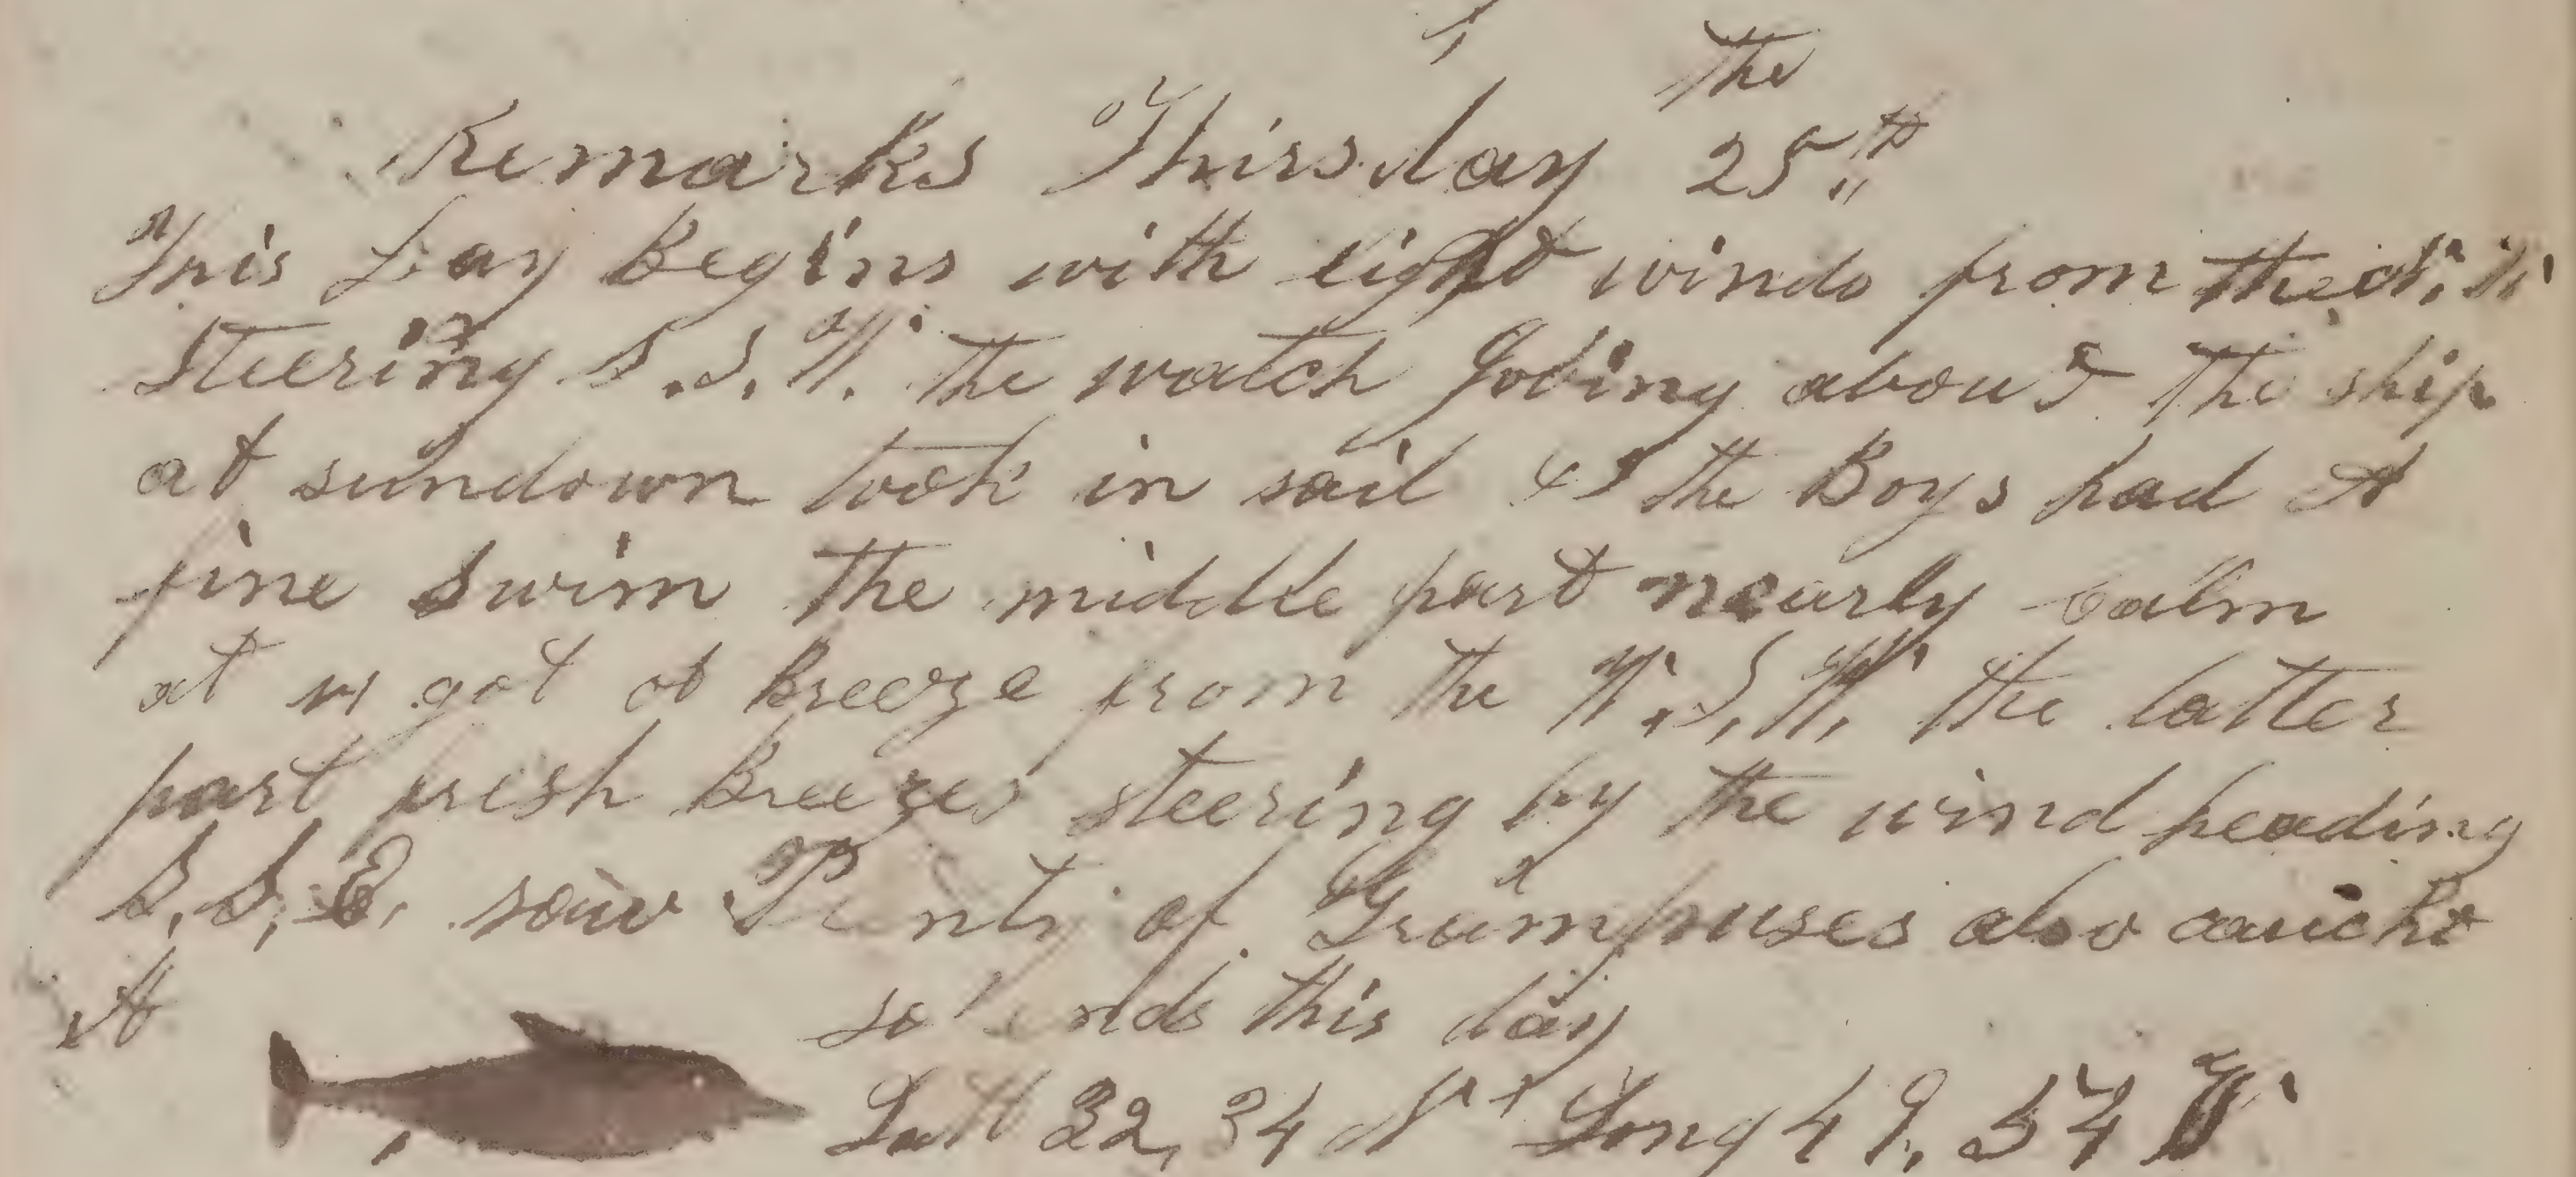 The
Remarks Thirsday 25th
This Day Begins with light winds from the N. W
Steering S. S. W. the watch Jobing about the ship
at sundown took in sail & the Boys had A
fine swim the middle part nearly calm
at got a Breeze from the W. S. W. the latter
part fresh Breezes steering by the wind heading
S. S. E. saw Plenty of Grumpuses also caucht
A so ends this day
Latt 32, 34 N Long 49, 54 W